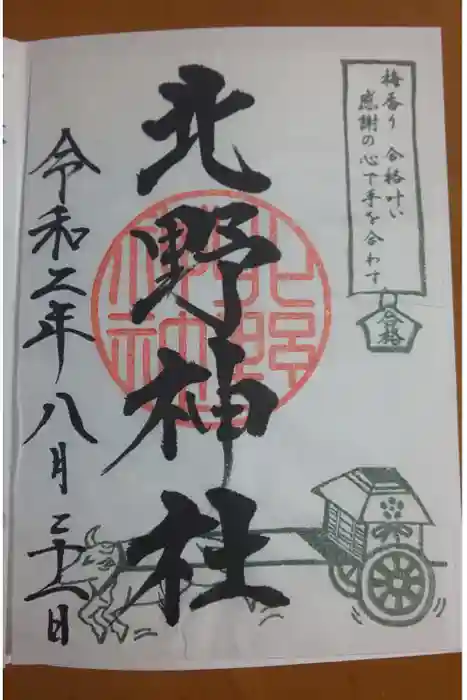 梅香り 合格叶い
感謝の心で手を合わす
合格
北野神社
北野神社
令和二年八月二十八日